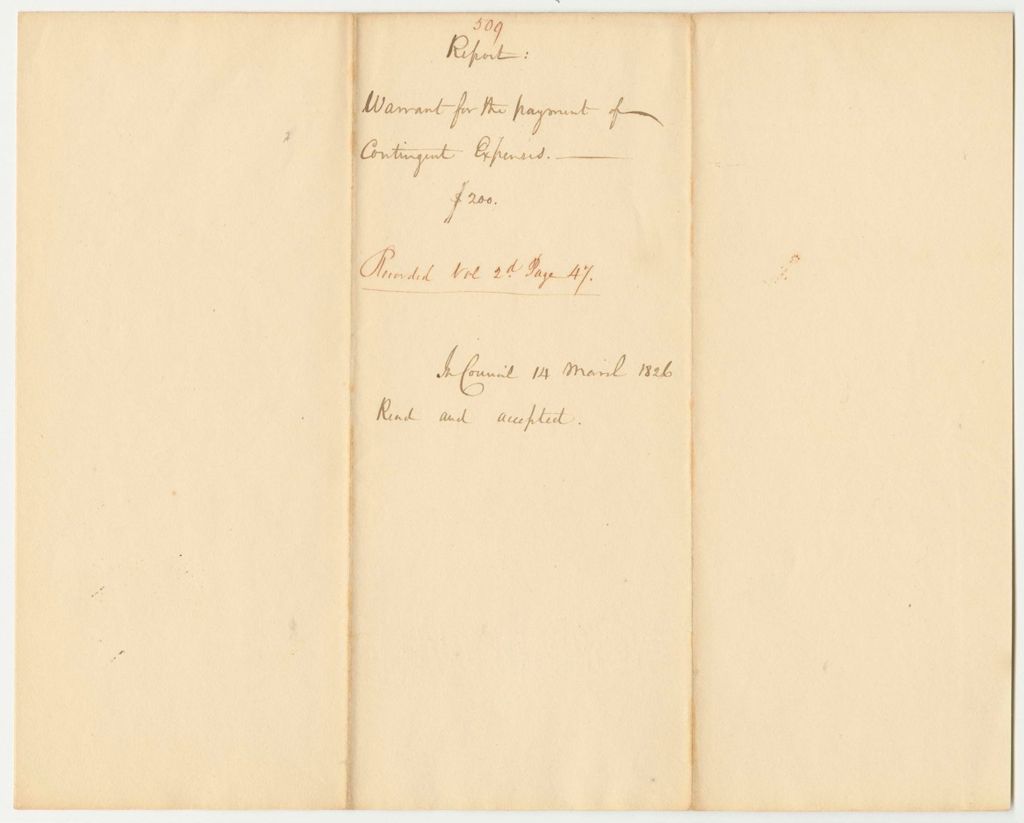 509
Report:
Warrant for the payment of
Contingent Expenses.
$200.
Recorded Vol 2d Page 47.
In Council 14 March 1826
Read and accepted.